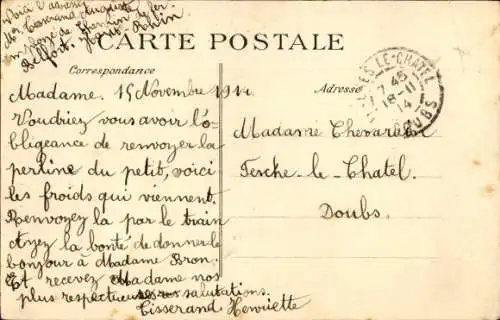 Voici l'adresse
Mr Tisserand Auguste
employé de Chemin de fer.
Belfort. Haut-Rhin
CARTE POSTALE
Correspondance
Adresse
LE-CHATEL
7 45
18-11
14
DOUBS
Madame. 15 Novembre 1914.
Voudriez vous avoir l'o-
bligeance de renvoyer la
perline du petit, voici
les froids qui viennent.
Renvoyez la par le train
Ayez la bonté de donner le
bonjour à Madame Bron.
Et recevez Madame nos
plus respectueuses salutations.
Tisserand Henriette
Madame
Fesche-le-Chatel.
Doubs.